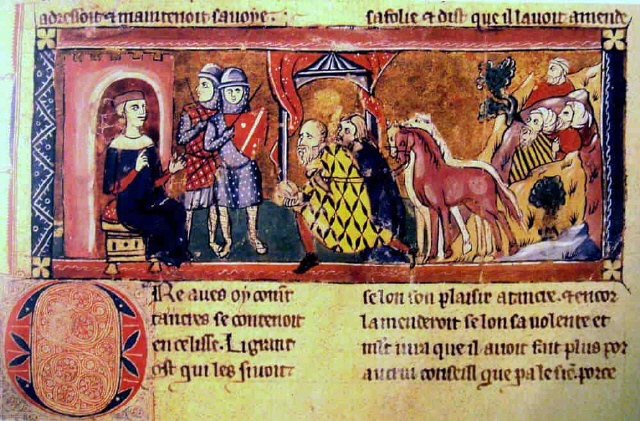 adresoit & maintenoit sa voye .
sa folie & dist que il lavoit amende
Ore aves oy comt
tancres se contenoit
en celisse. Li grant
ost qui les sivoit
selon son plaisir a tincre. & encor
lamenderoit selon sa volente et
mlt iura que il avoit fait plus por
autrui conseill que pa le sie. porce